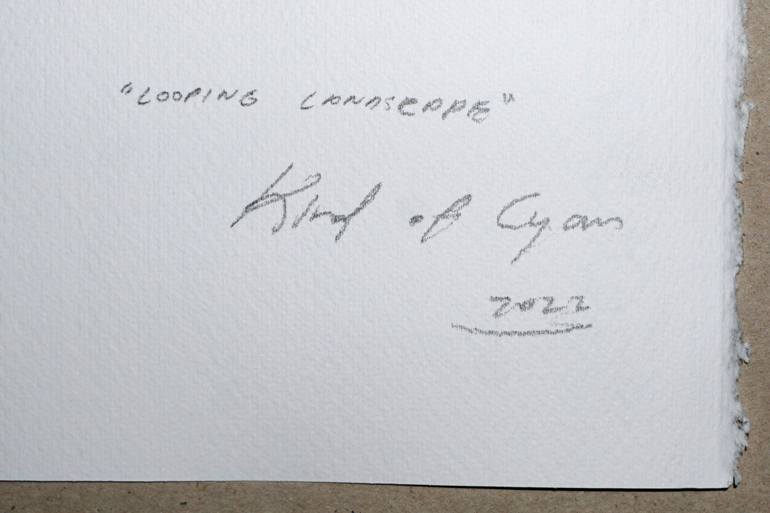 "LOOPING LANDSCAPE"
Kind of Cyan
2022